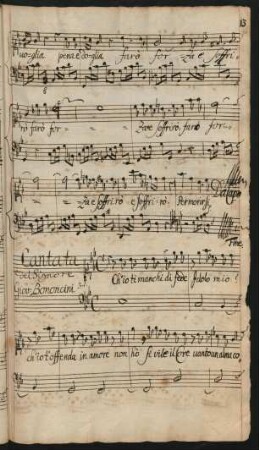 13
uoglia pena e doglia farò for - za e soffri -
rò farò for - - - - za e soffrirò farò for -
- - - za e soffrirò e soffri - rò
Fine
Cantata
Del Signore
Gioan: Bononcini
Ch'io ti manchi di fede Idolo mio!
ch'io t'offenda in amore non hò si vile il core